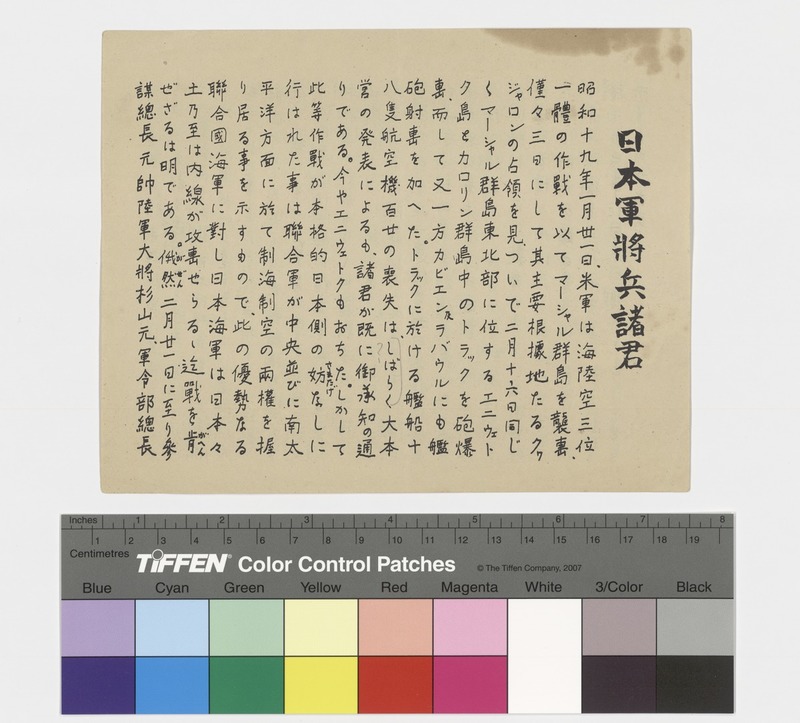 日本軍將兵諸君
昭和十九年一月廿一日、米軍は海陸空三位
一體の作戰を以てマーシャル群島を襲撃、
僅々三日にして其主要根據地たるクヮ
ジャロンの占領を見、ついで二月十六日同じ
くマーシャル群島東北部に位するエニウェト
ク島とカロリン群島中のトラックを砲爆
撃、而して又一方カビエン及ラバウルにも艦
砲射撃を加へた。トラックに於ける艦船十
八隻航空機百廿の喪失は、しばらく大本
營の発表によるも、諸君が既に御承知の通
りである。今やエニウェトクもおちた。しかして
此等作戰が本格的日本側の妨なしに
さまたげ
行はれた事は聯合軍が中央並びに南太
平洋方面に於て制海制空の兩權を握
り居る事を示すもので、此の優勢なる
聯合國海軍に對し日本海軍は日本々
土乃至は内線が攻撃せらるゝ迄戰を肯
がへん
ぜざるは明である。俄然二月廿一日に至り參
がぜん
謀總長元帥陸軍大將杉山元、軍令部總長
Inches 1 2 3 4 5 6 7 8
1 2 3 4 5 6 7 8 9 10 11 12 13 14 15 16 17 18 19
Centimetres
TIFFEN® Color Control Patches
© The Tiffen Company, 2007
Blue Cyan Green Yellow Red Magenta White 3/Color Black